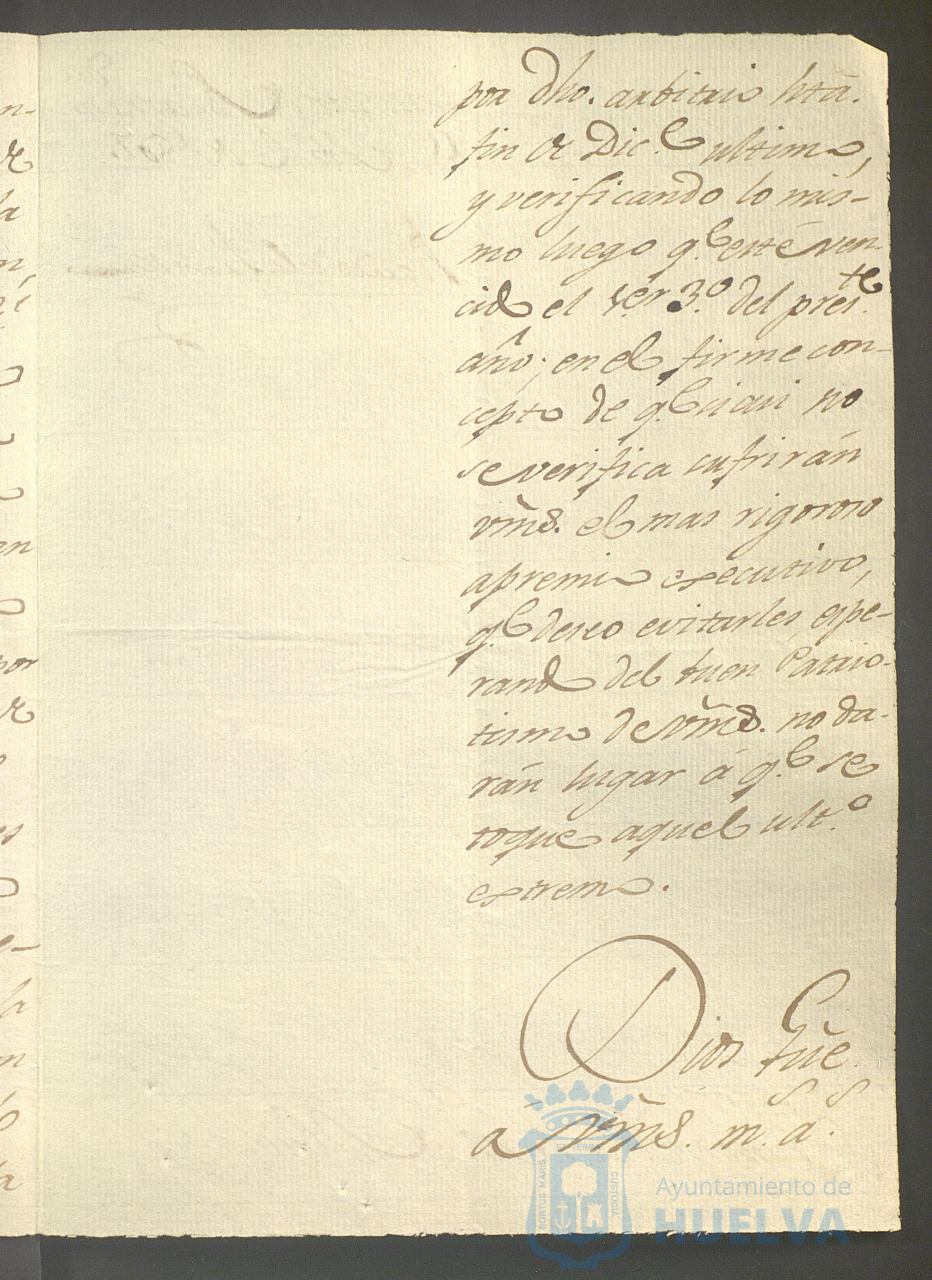 por dho. arbitrio hta.
fin de Dic.e ultimo,
y verificando lo mis-
mo luego q.e esté ven-
cido el ter.º 3.º del pres.te
año; en el firme con-
cepto de q.e si asi no
se verifica sufrirán
vms. el mas rigoroso
apremio executivo,
q.e deseo evitarles, espe-
rando del buen Patrio-
tismo de Vms. no da-
rán lugar á q.e se
toque aquel ult.º
extremo.
Dios gue.
a Vms. m.s a.s
PORTUS MARIS
ET TERRAE
CUSTODIA
Ayuntamiento de
HUELVA